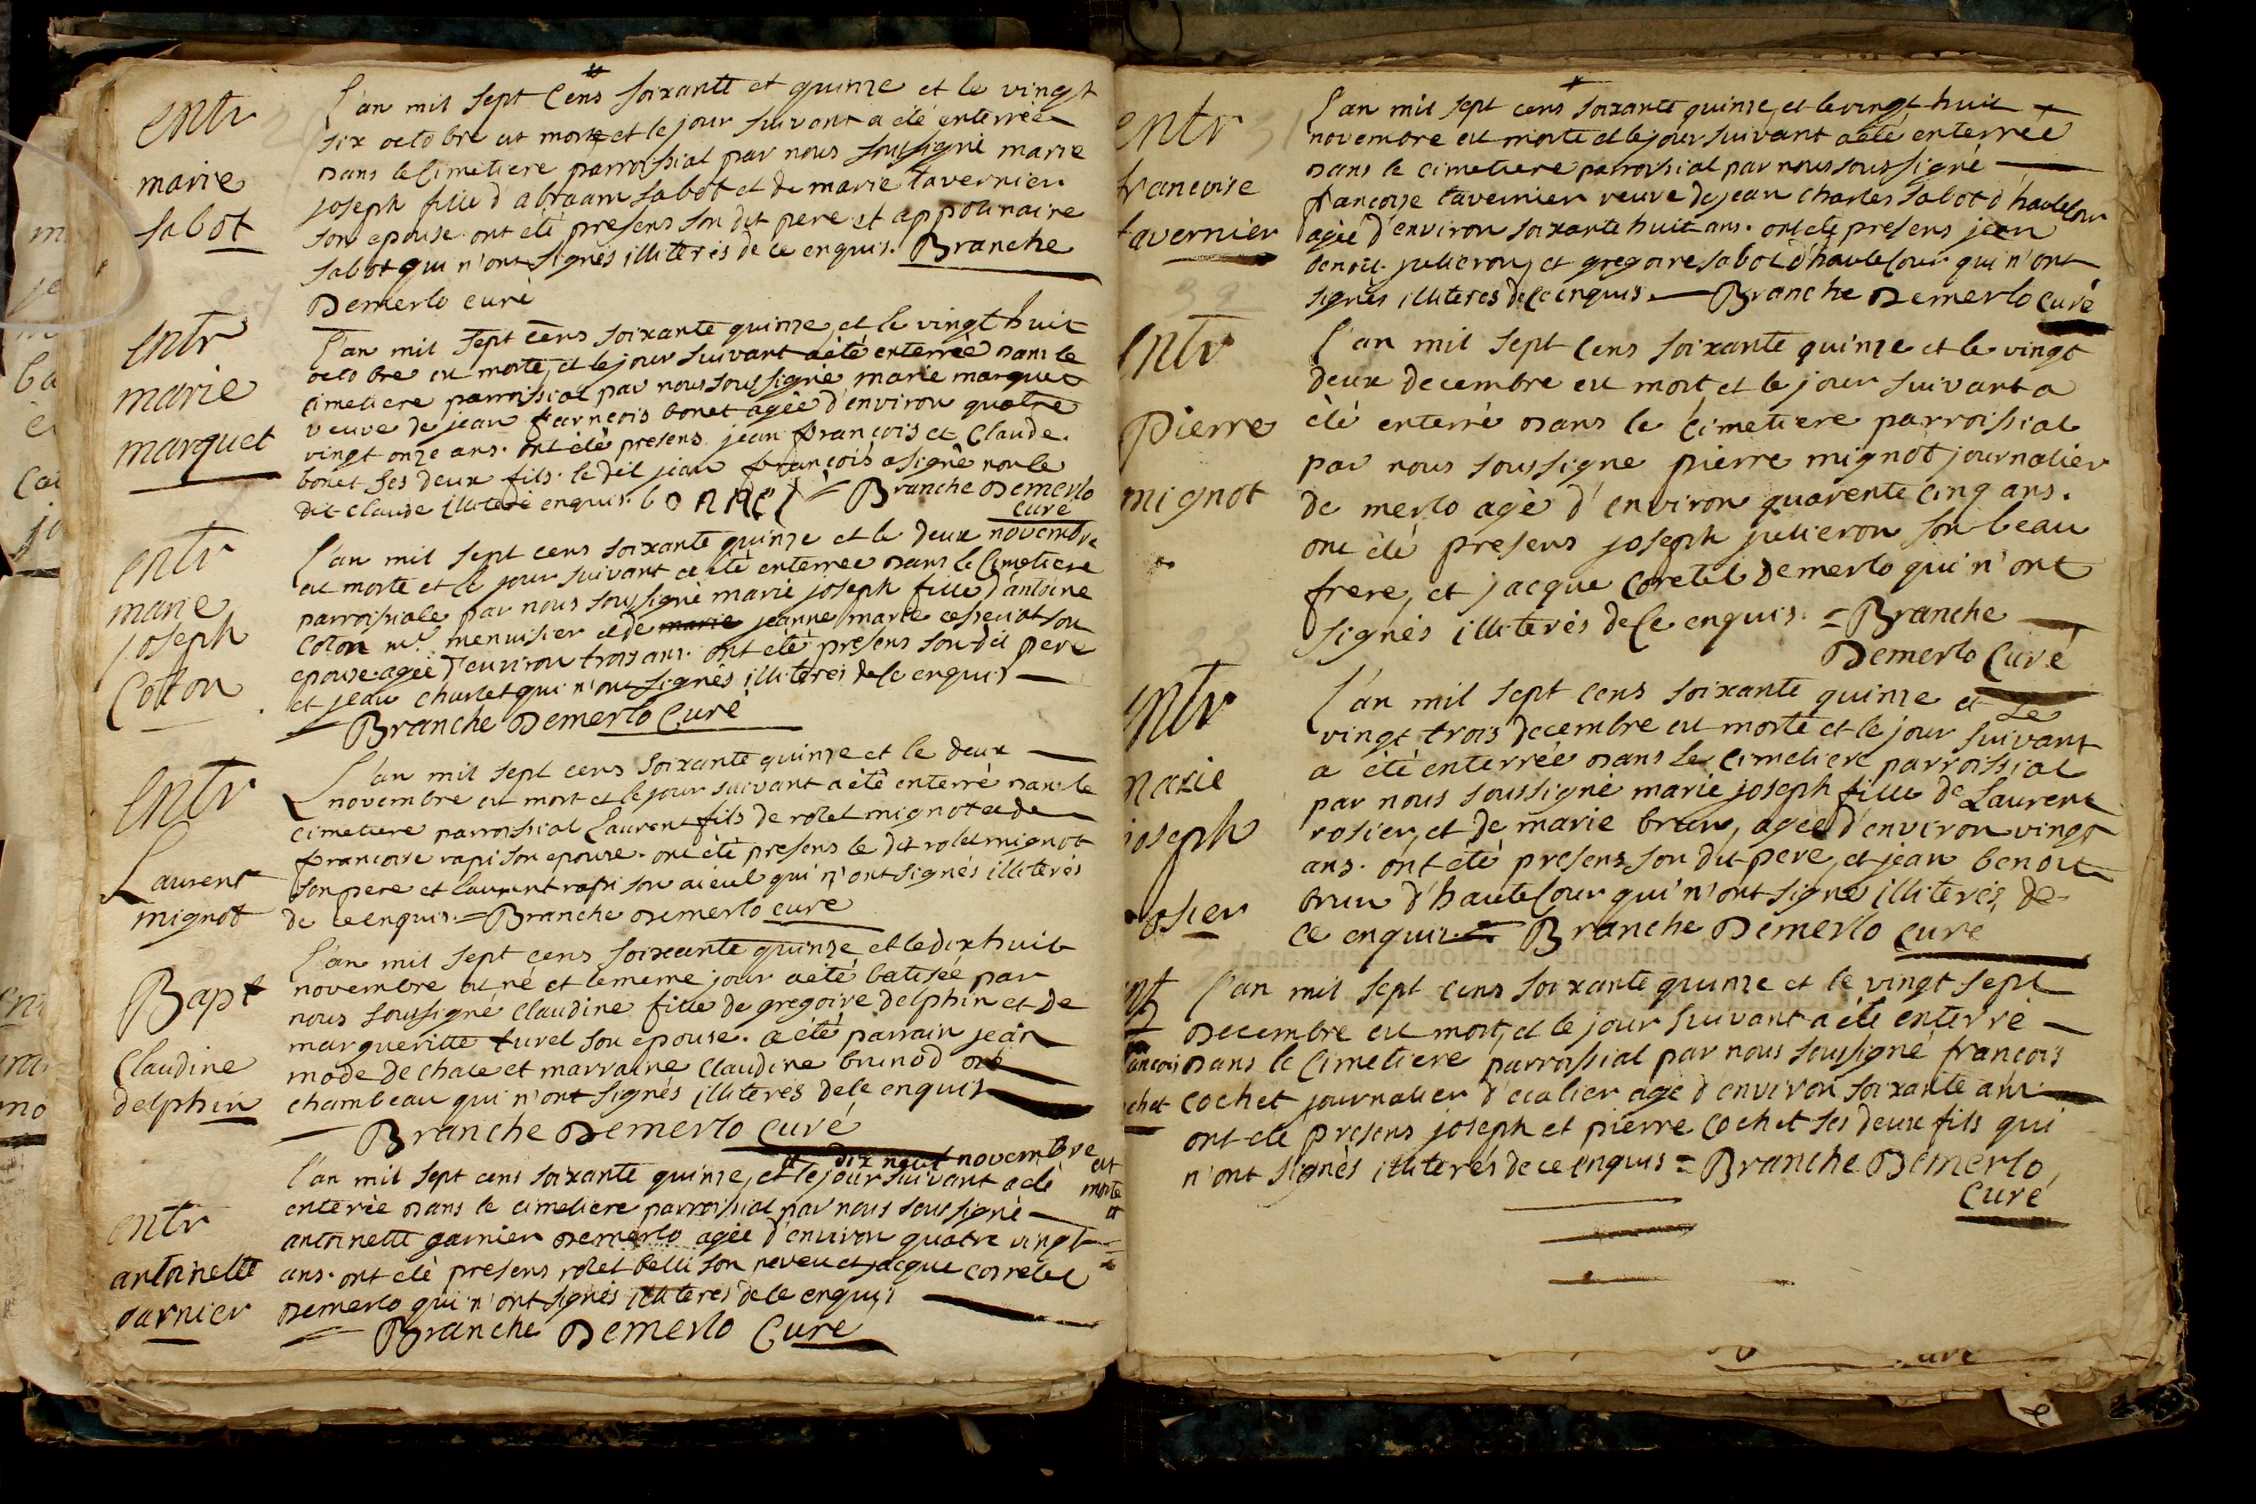 entr
marie
sabot
L'an mil sept cens soixante et quinze et le vingt
six octobre est morte et le jour suivant a été enterrée
dans le cimetiere parroissial par nous soussigné marie
joseph fille d'abraam sabot et de marie tavernier
son epouse ont été presens son dit pere et appolinaire
sabot qui n'ont signés illiterés de ce enquis. Branche
Demerlo curé
entr
marie
marquet
L'an mil sept cens soixante quinze, et le vingt huit
octobre est morte, et le jour suivant a été enterrée dans le
cimetiere parroissial par nous soussigné marie marquet
veuve de jean farncois bonet agée d'environ quatre
vingt onze ans. ont été presens jean françois et Claude.
bonet ses deux fils. le dit jean françois a signé non le
dit claude illiteré enquis. bonnet = Branche Demerlo
curé
entr
marie
joseph
Cotton
L'an mil sept cens soixante quinze et le deux novembre
est morte et le jour suivant a été enterrée dans le Cimetiere
parroissiale par nous soussigné marie joseph fille d'antoine
Coton me. menuisier et de marie jeanne marie son
epouse agée d'environ trois ans. ont été presens son dit pere
et jean charlet qui n'ont signés illiterés de ce enquis —
— Branche Demerlo Curé
entr
Laurent
mignot
L'an mil sept cens soixante quinze et le deux —
novembre est mort et le jour suivant a été enterré dans le
cimetiere parroissial Laurent fils de rolet mignot et de
francoise rapi son epouse. ont été presens le dit rolet mignot
son pere et laurent rapi son aieul qui n'ont signés illiterés
de ce enquis. = Branche Demerlo curé
Bapt
Claudine
delphin
L'an mil sept cens soixante quinze et le dix huit
novembre est né et le meme jour a été batisée par
nous soussigné Claudine fille de gregoire delphin et de
margueritte turel son epouse. a été parrain jean
mode de chale et marraine Claudine brunod de
chambeau qui n'ont signés illiterés de ce enquis
— Branche Demerlo curé
entr
antoinette
garnier
et dix neuf novembre est
morte
et
L'an mil sept cens soixante quinze, et le jour suivant a été
enterée dans le cimetiere parroissial par nous soussigné —
antoinette garnier demerlo agée d'environ quatre vingt
ans. ont été presens rolet belli son neveu et jacque corretel
Demerlo qui n'ont signés illiterés de ce enquis —
= Branche Demerlo Curé
entr
francoise
tavernier
L'an mil sept cens soixante quinze, et le vingt huit —
novembre est morte et le jour suivant a été enterrée
dans le cimetiere parroissial par nous soussigné —
françoise tavernier veuve de jean charles sabot d'hautecour
agée d'environ soixante huit ans. ont été presens jean
benoit julieron, et gregoire sabot d'hautecour qui n'ont
signés illiterés de ce enquis. — Branche Demerlo Curé
entr
Pierre
mignot
L'an mil sept cens soixante quinze et le vingt
deux decembre est mort et le jour suivant a
été enterré dans le cimetiere parroissial
par nous soussigné pierre mignot journalier
de merlo agé d'environ quarente cinq ans.
ont été presens joseph julieron son beau
frere, et jacque coretel Demerlo qui n'ont
signés illiterés de ce enquis. = Branche —
Demerlo Curé
entr
marie
joseph
rosier
L'an mil sept cens soixante quinze et le
vingt trois decembre est morte et le jour suivant
a été enterrée dans le cimetiere parroissial
par nous soussigné marie joseph fille de Laurent
rosier, et de marie brun, agée d'environ vingt
ans. ont été presens son dit pere, et jean benoit
brun d'hautecour qui n'ont signé illiterés, de-
ce enquis. = Branche Demerlo curé
ancois
chet
L'an mil sept cens soixante quinze et le vingt sept
Decembre est mort, et le jour suivant a été enterré —
dans le Cimetiere parroissial par nous soussigné françois
cochet journalier d'ecalier agé d'environ soixante ans —
ont été presens joseph et pierre Cochet ses deux fils qui
n'ont signés illiterés de ce enquis = Branche Demerlo,
Curé